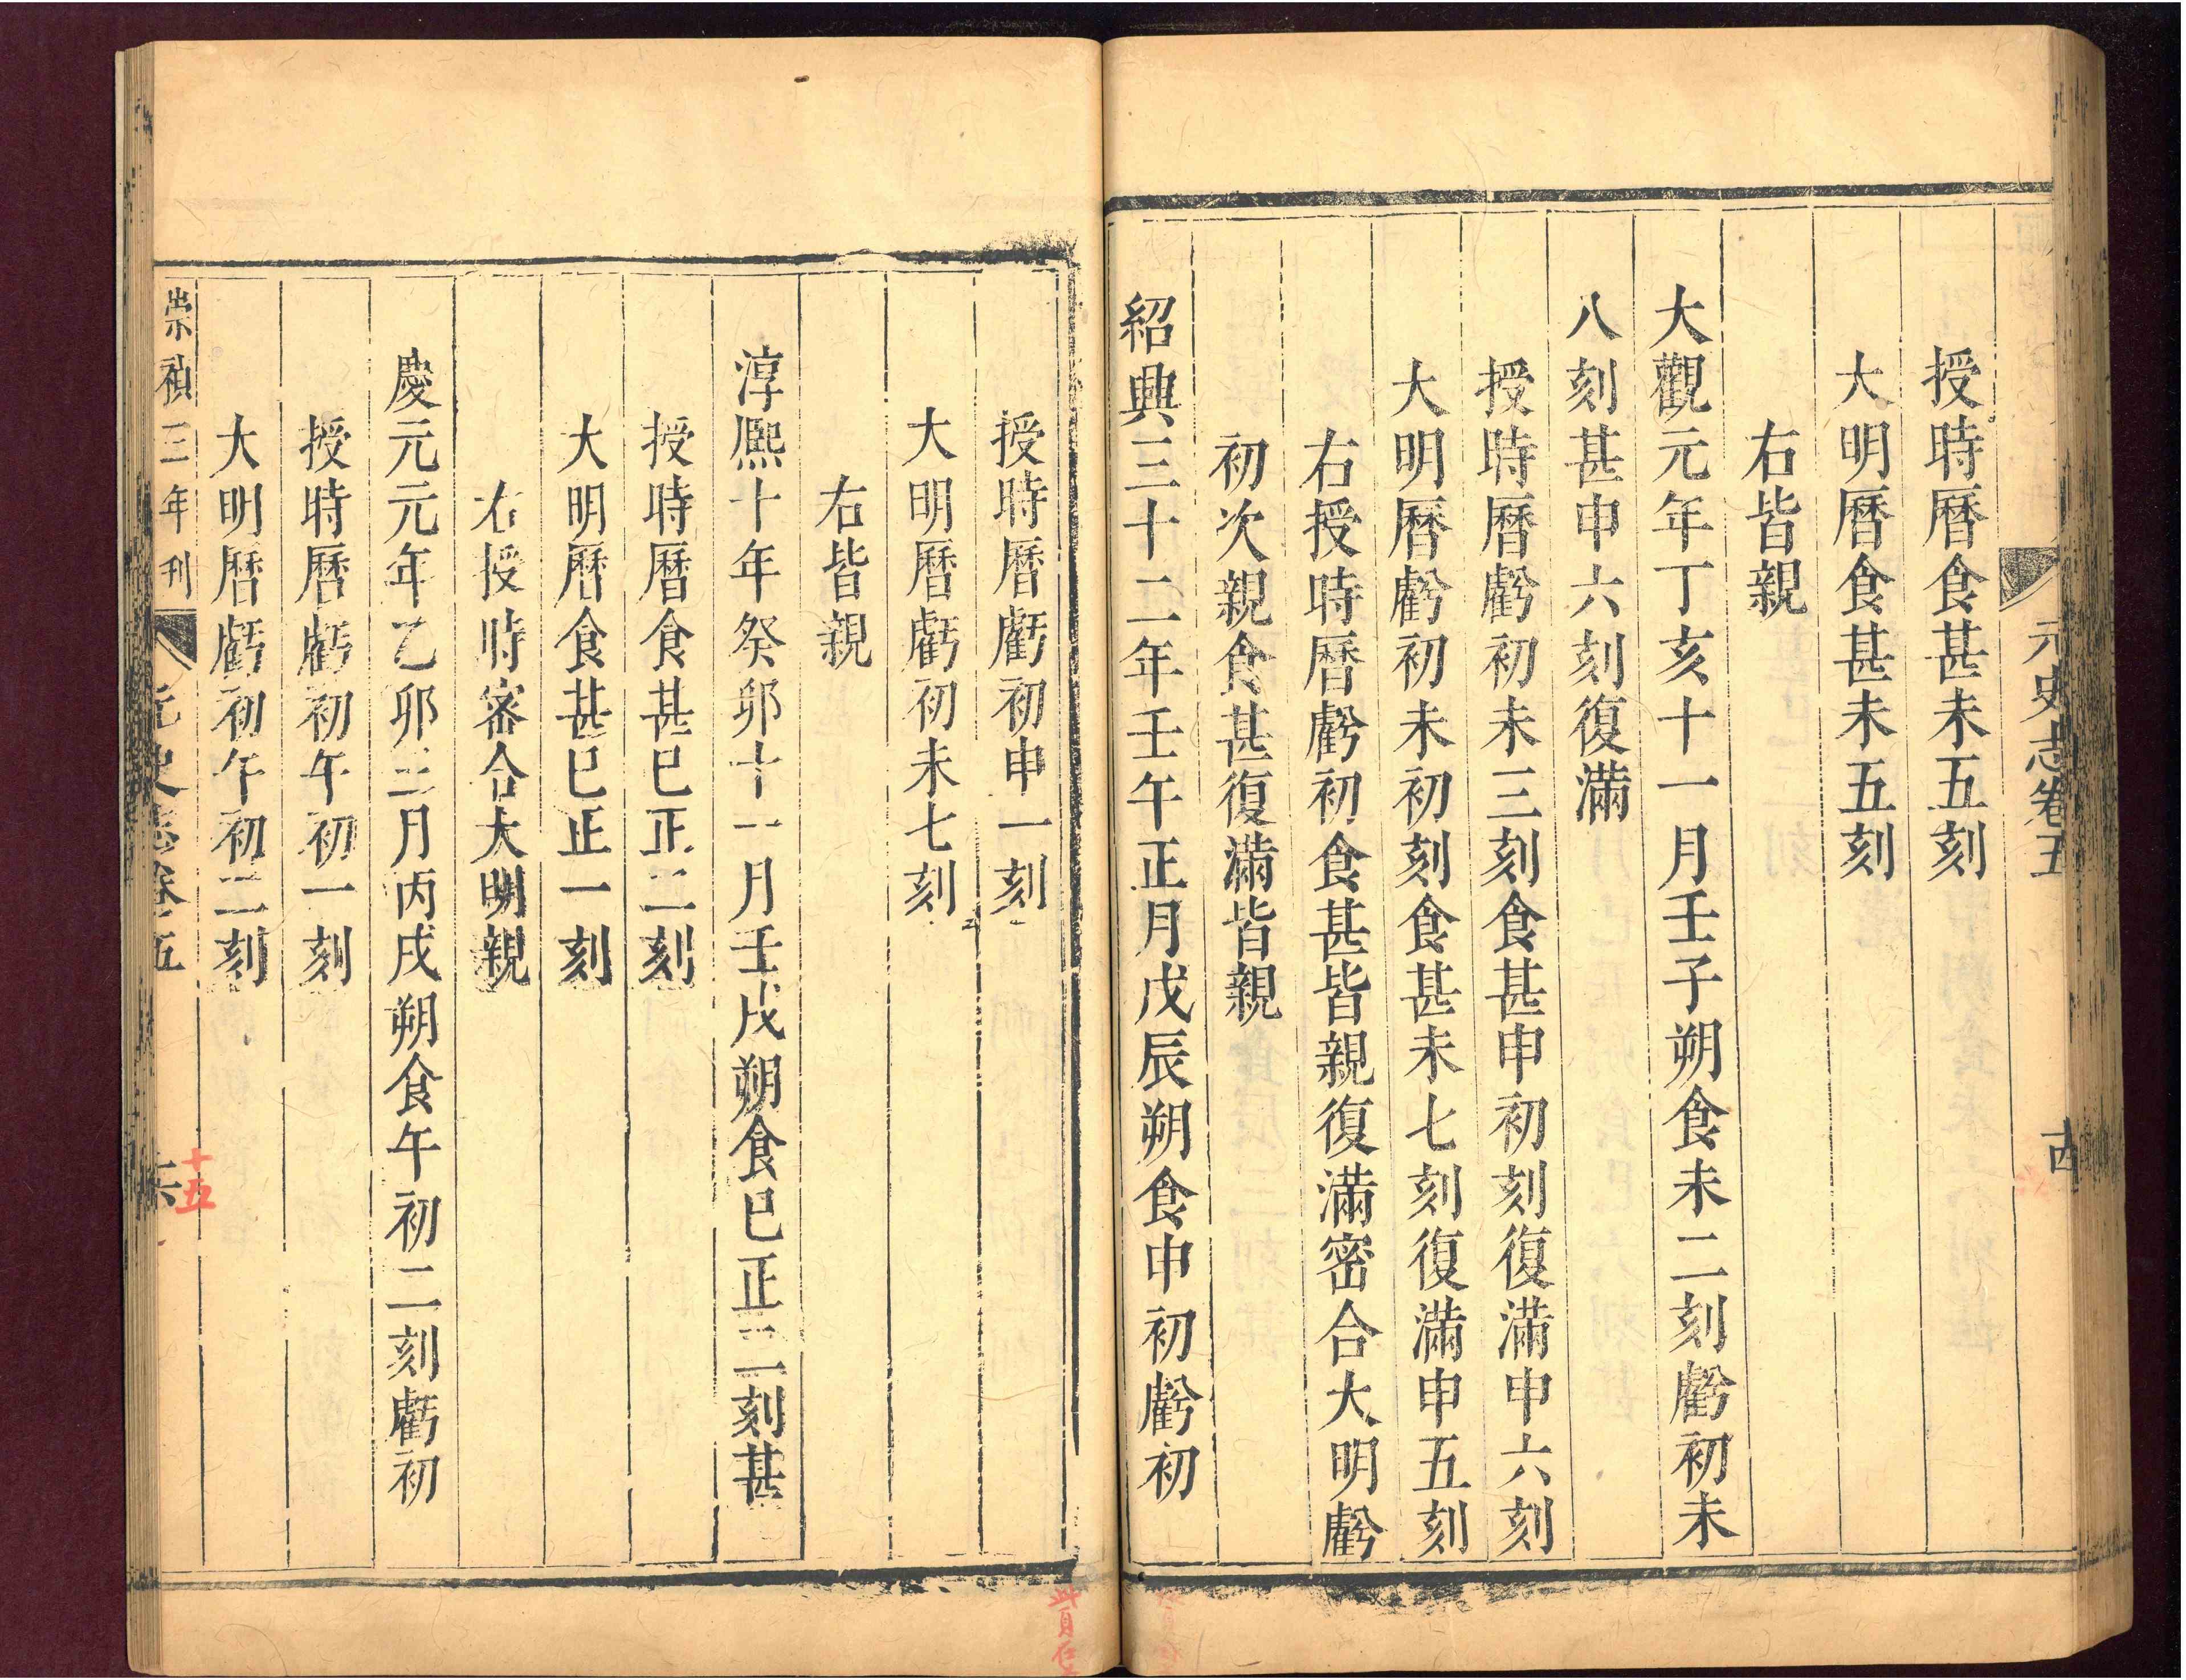 元史志卷五
十四
授時曆食甚未五刻
大明曆食甚未五刻
右皆親
大觀元年丁亥十一月壬子朔食未二刻虧初未
八刻甚申六刻復滿
授時曆虧初未三刻食甚申初刻復滿申六刻
大明曆虧初未初刻食甚未七刻復滿申五刻
右授時曆虧初食甚皆親復滿密合大明虧
初次親食甚復滿皆親
紹興三十二年壬午正月戊辰朔食申初虧初
授時曆虧初申一刻
大明曆虧初未七刻
右皆親
淳熈十年癸卯十一月壬戌朔食巳正二刻甚
授時曆食甚巳正二刻
大明曆食甚巳正一刻
右授時密合大明親
慶元元年乙卯三月丙戌朔食午初二刻虧初
授時曆虧初午初一刻
大明曆虧初午初二刻
崇禎三年刊
元史志卷五
十五